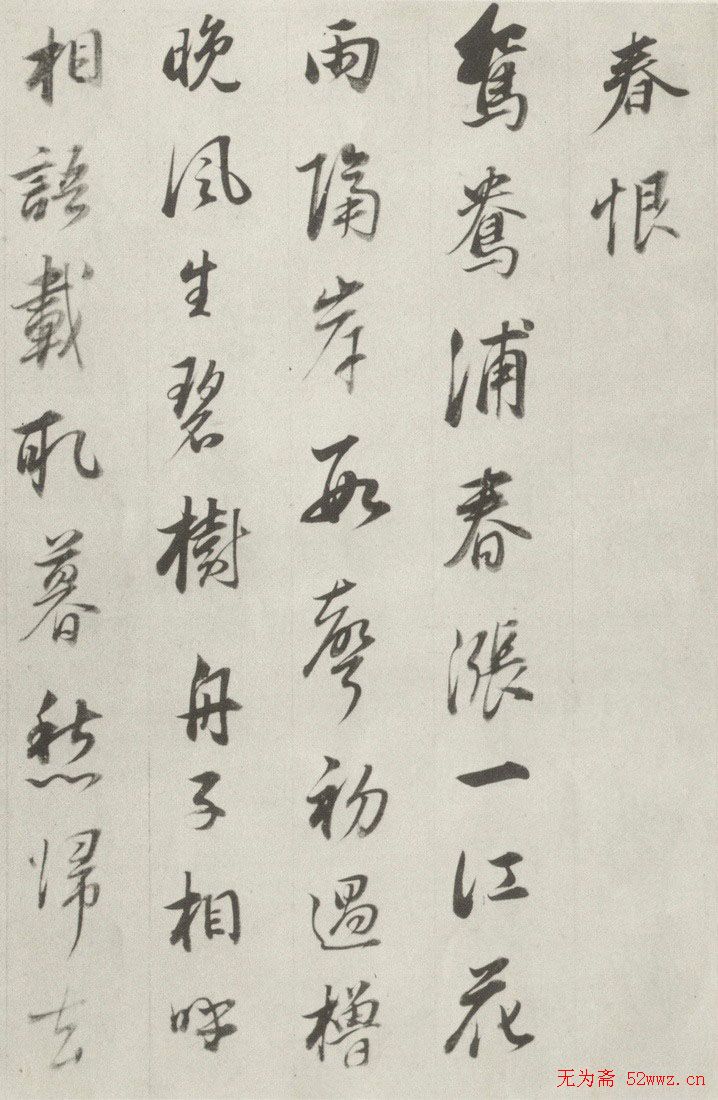 春恨
鴛鴦浦春漲一江花
雨隔岸數聲初過櫓
晚風生碧樹舟子相呼
相語載取暮愁歸去
无为斋 52wwz.cn